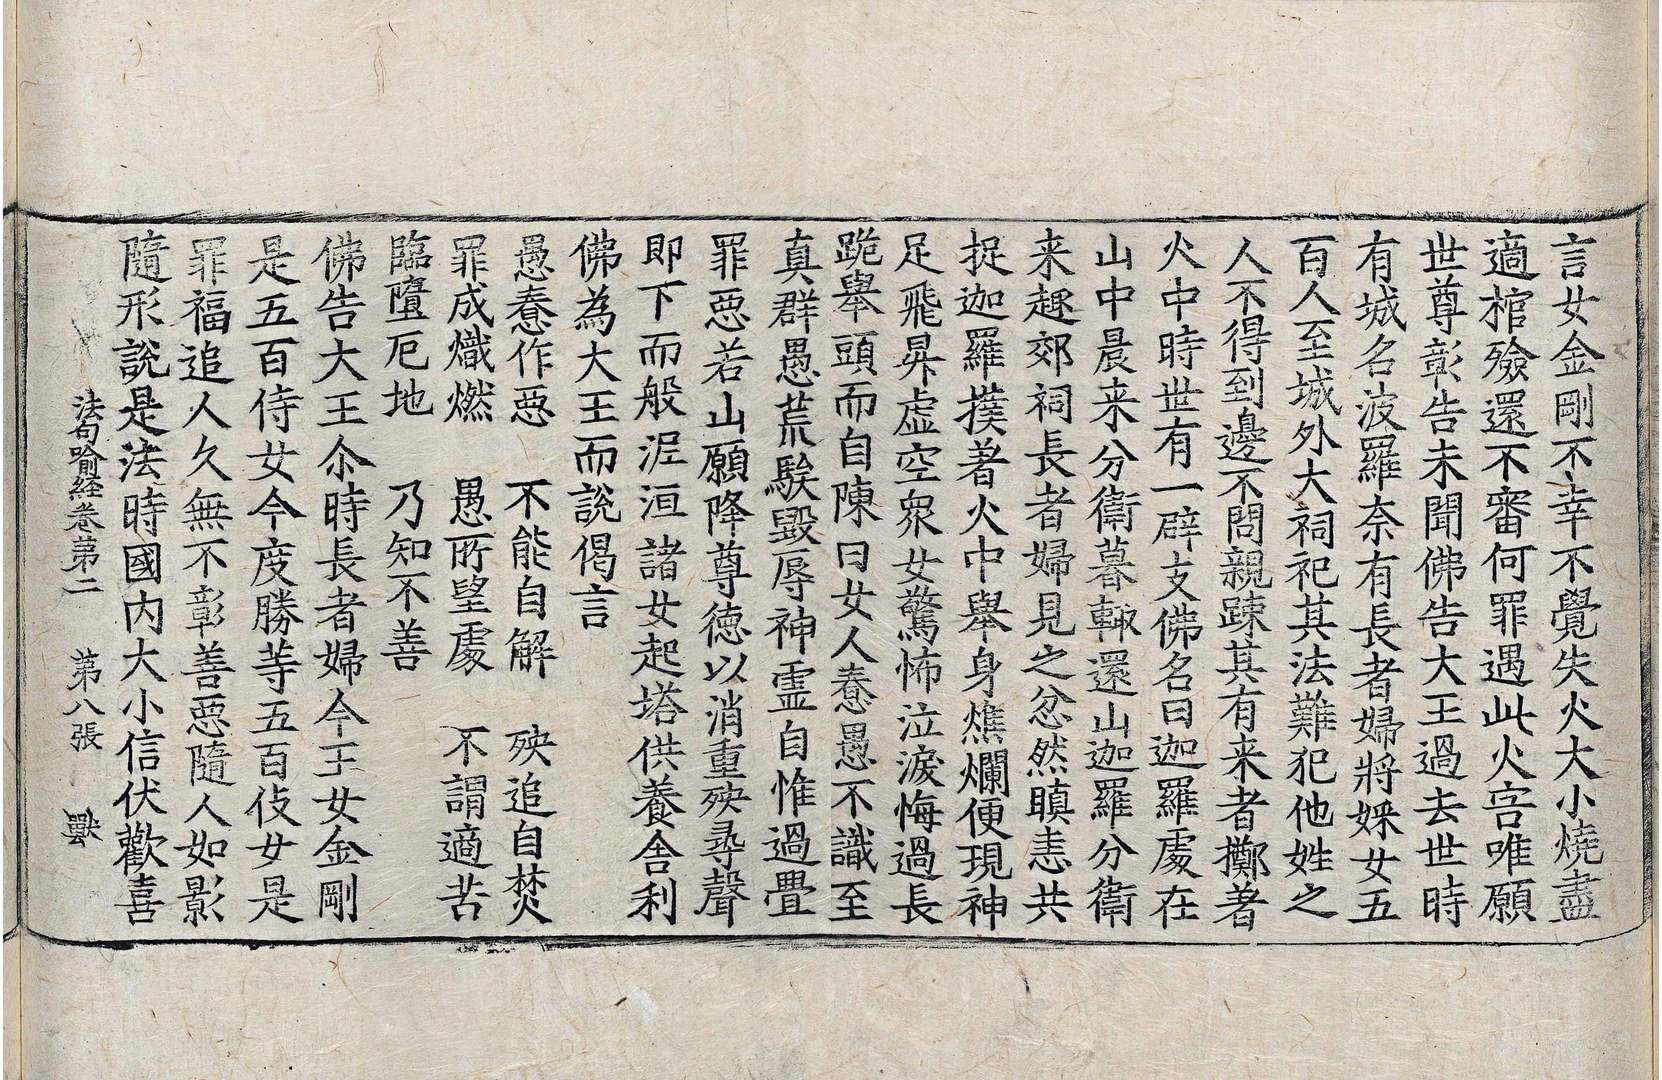 言女金剛不幸不覺失火大小燒盡
適棺殮還不審何罪遇此火害唯願
世尊彰告未聞佛告大王過去世時
有城名波羅奈有長者婦將婇女五
百人至城外大祠祀其法難犯他姓之
人不得到邊不問親踈其有来者擲著
火中時世有一辟支佛名曰迦羅處在
山中晨来分衛暮輙還山迦羅分衛
来趣郊祠長者婦見之忿然瞋恚共
捉迦羅撲著火中舉身燋爛便現神
足飛昇虛空衆女驚怖泣淚悔過長
跪舉頭而自陳曰女人惷愚不識至
真群愚荒騃毀辱神靈自惟過疊
罪惡若山願降尊德以消重殃尋聲
即下而般泥洹諸女起塔供養舍利
佛為大王而說偈言
愚惷作惡　不能自解　殃追自焚
罪成熾燃　愚所望處　不謂適苦
臨墮厄地　乃知不善
佛告大王尒時長者婦今王女金剛
是五百侍女今度勝等五百伎女是
罪福追人久無不彰善惡隨人如影
隨形說是法時國內大小信伏歡喜
法句喻經卷第二　第八張　獸